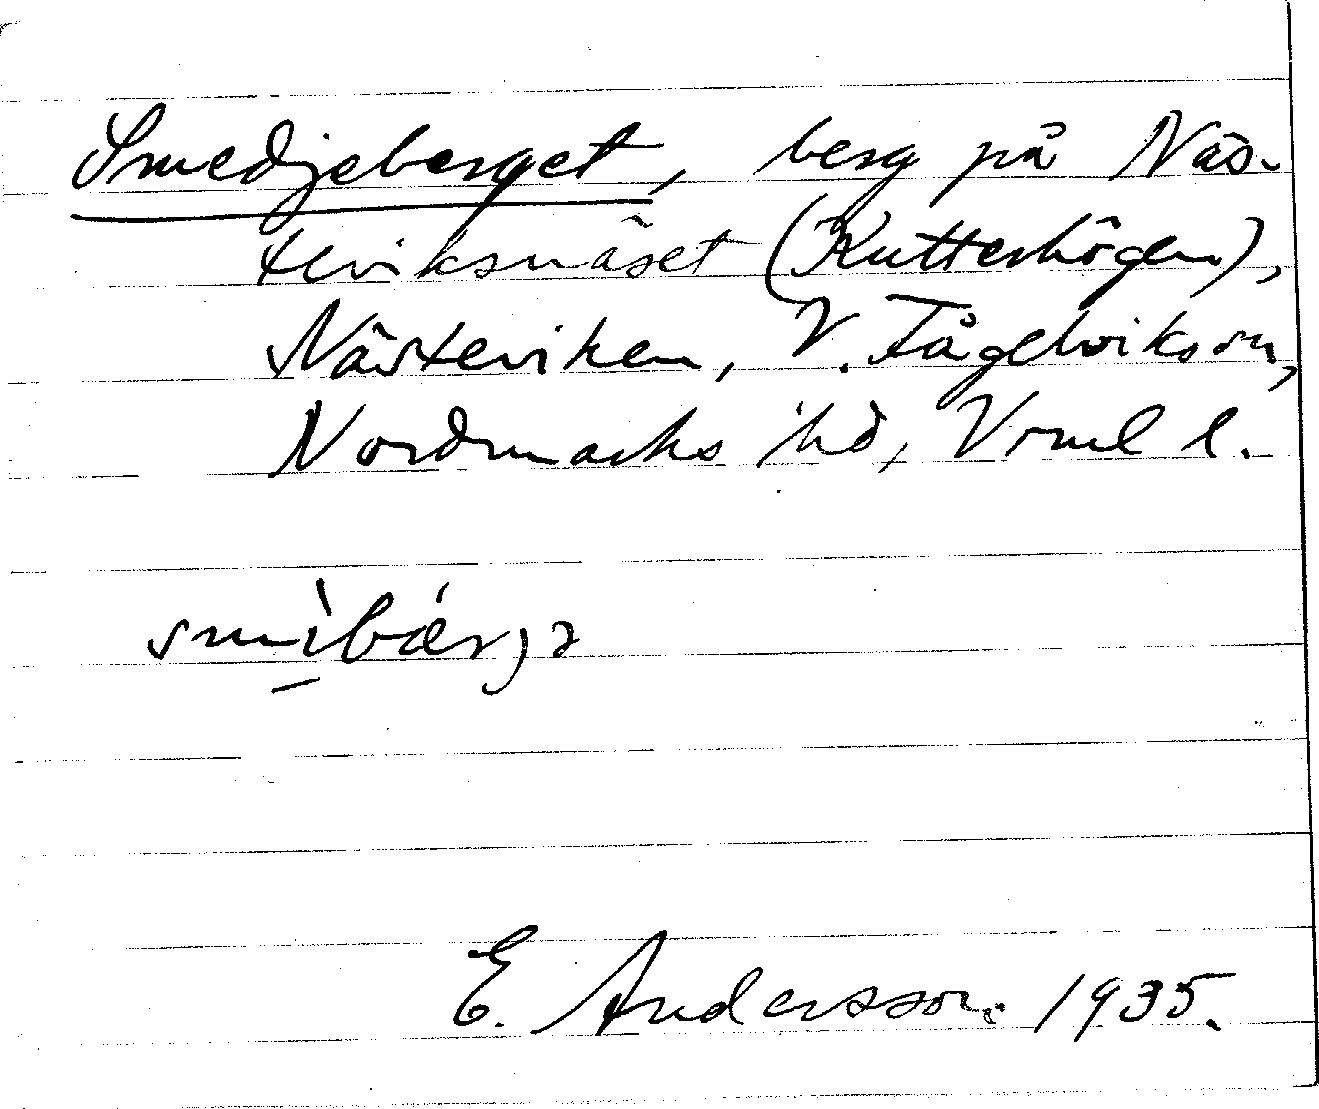 Smedjeberget, berg på Näs-
teviksnäset (Kutterhögen),
Nästeviken, V. Fågelvik sn,
Nordmarks hd, Vrml l.
E. Andersson. 1935.